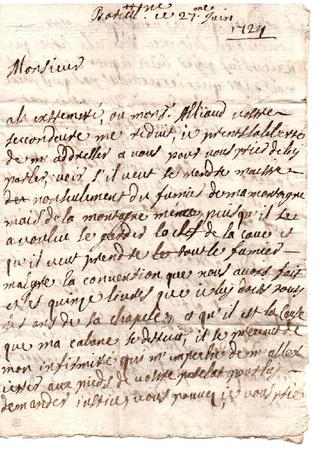 ce 27me Juin
1724
Monsieur
al extremité, ou monsr. Alliaud vostre
secondaire me reduit, je prens la liberté
de m adresser a vous pour vous prier de luy
parler, voir s'il veut se rendre maistre
non seulement du fumier de ma montagne
mais de la montagne mesme puis qu'il se
a voulue se garder la clef de la cave et
qu'il veut prendre le tout le fumier
malgre la convention que nous avons fait
et es quinze livres que je luy dois tous
les ans de sa chapele, et qu'il est la cause
que ma cabane se destruit, il se prevaut de
mon infirmité qui m'empeche de m aller
jetter aux pieds de vostre pour luy
demander justice, vous pouvez, je vous prie